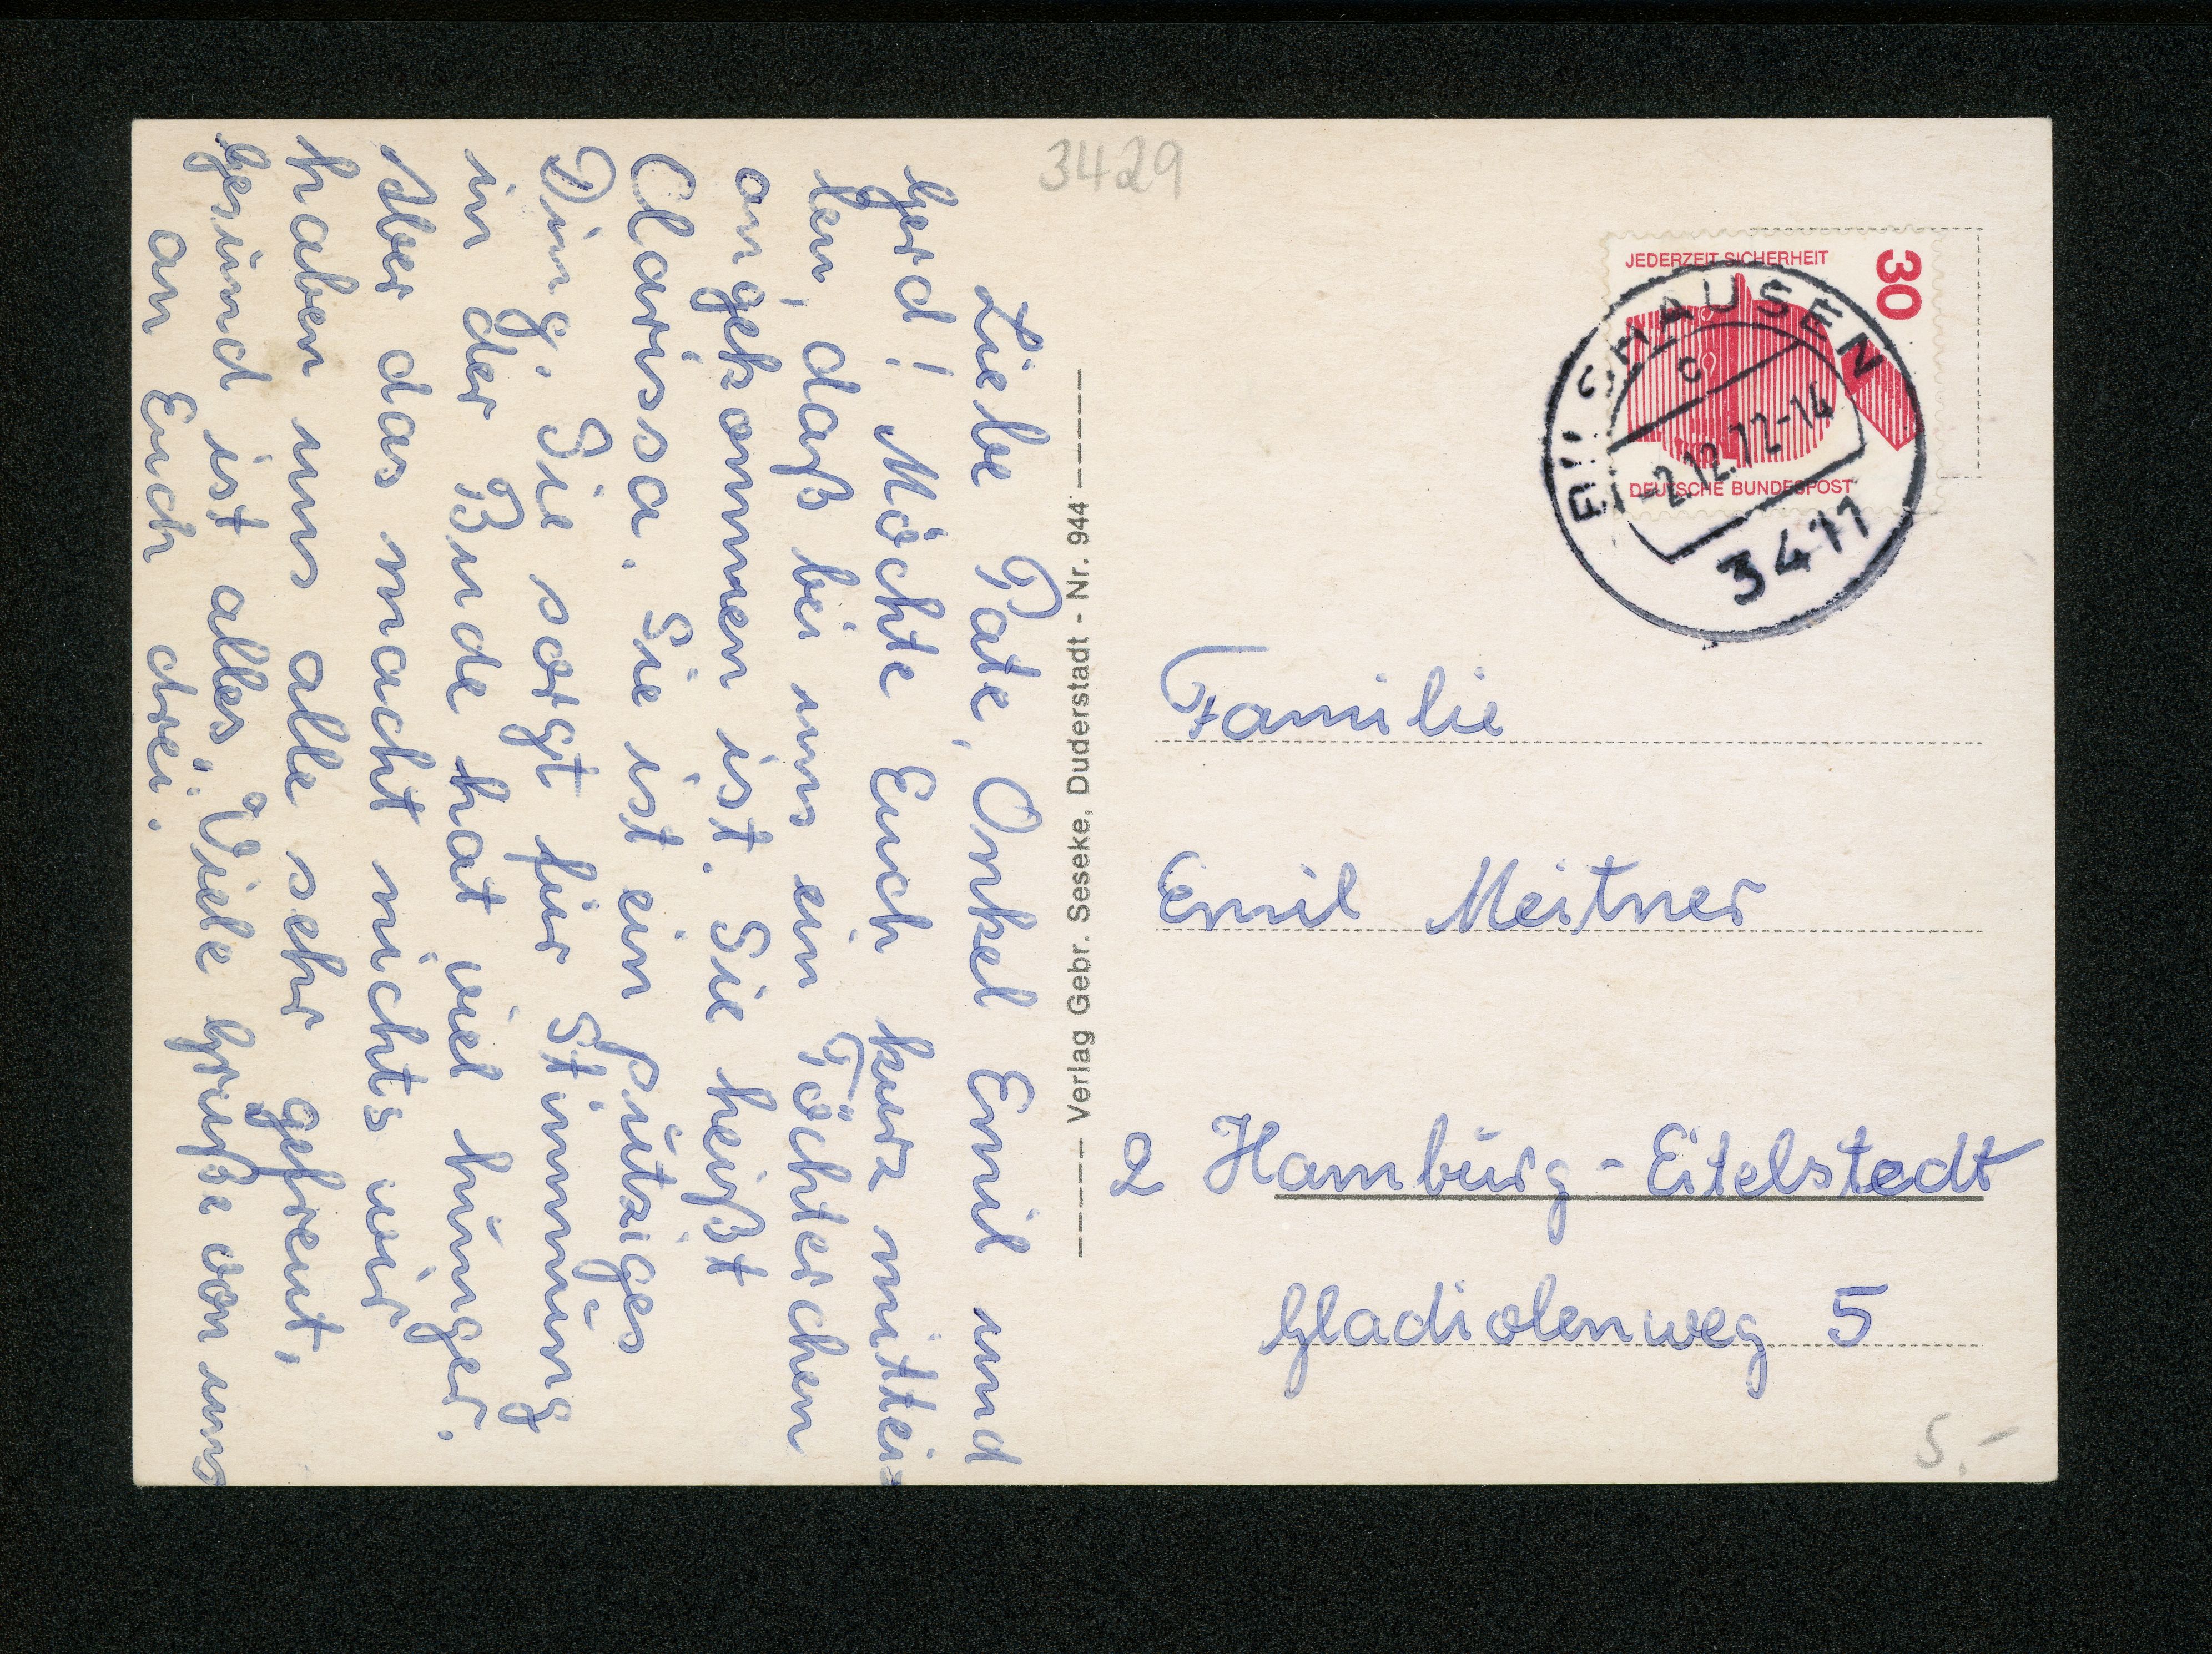 3429
Liebe Pate, Onkel Emil und
Gerd! Möchte Euch kurz mittei-
len, daß bei uns ein Töchterchen
angekommen ist. Sie heißt
Clarissa. Sie ist ein putziges
Ding. Sie sorgt für Stimmung
in der Bude hat viel hunger.
Aber das macht nichts wir
haben uns alle sehr gefreut,
gesund ist alles. Viele Grüße von uns
an Euch drei.
Verlag Gebr. Seseke, Duderstadt - Nr. 944
JEDERZEIT SICHERHEIT
30
DEUTSCHE BUNDESPOST
-2.12.72-14
3411
Familie
Emil Meitner
2 Hamburg-Eitelstedt
Gladiolenweg 5
5.-